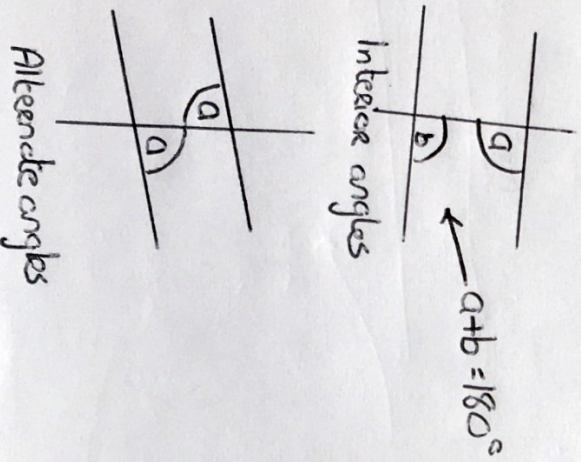 a
a+b=180°
b
Interior angles
a
a
Alternate angles